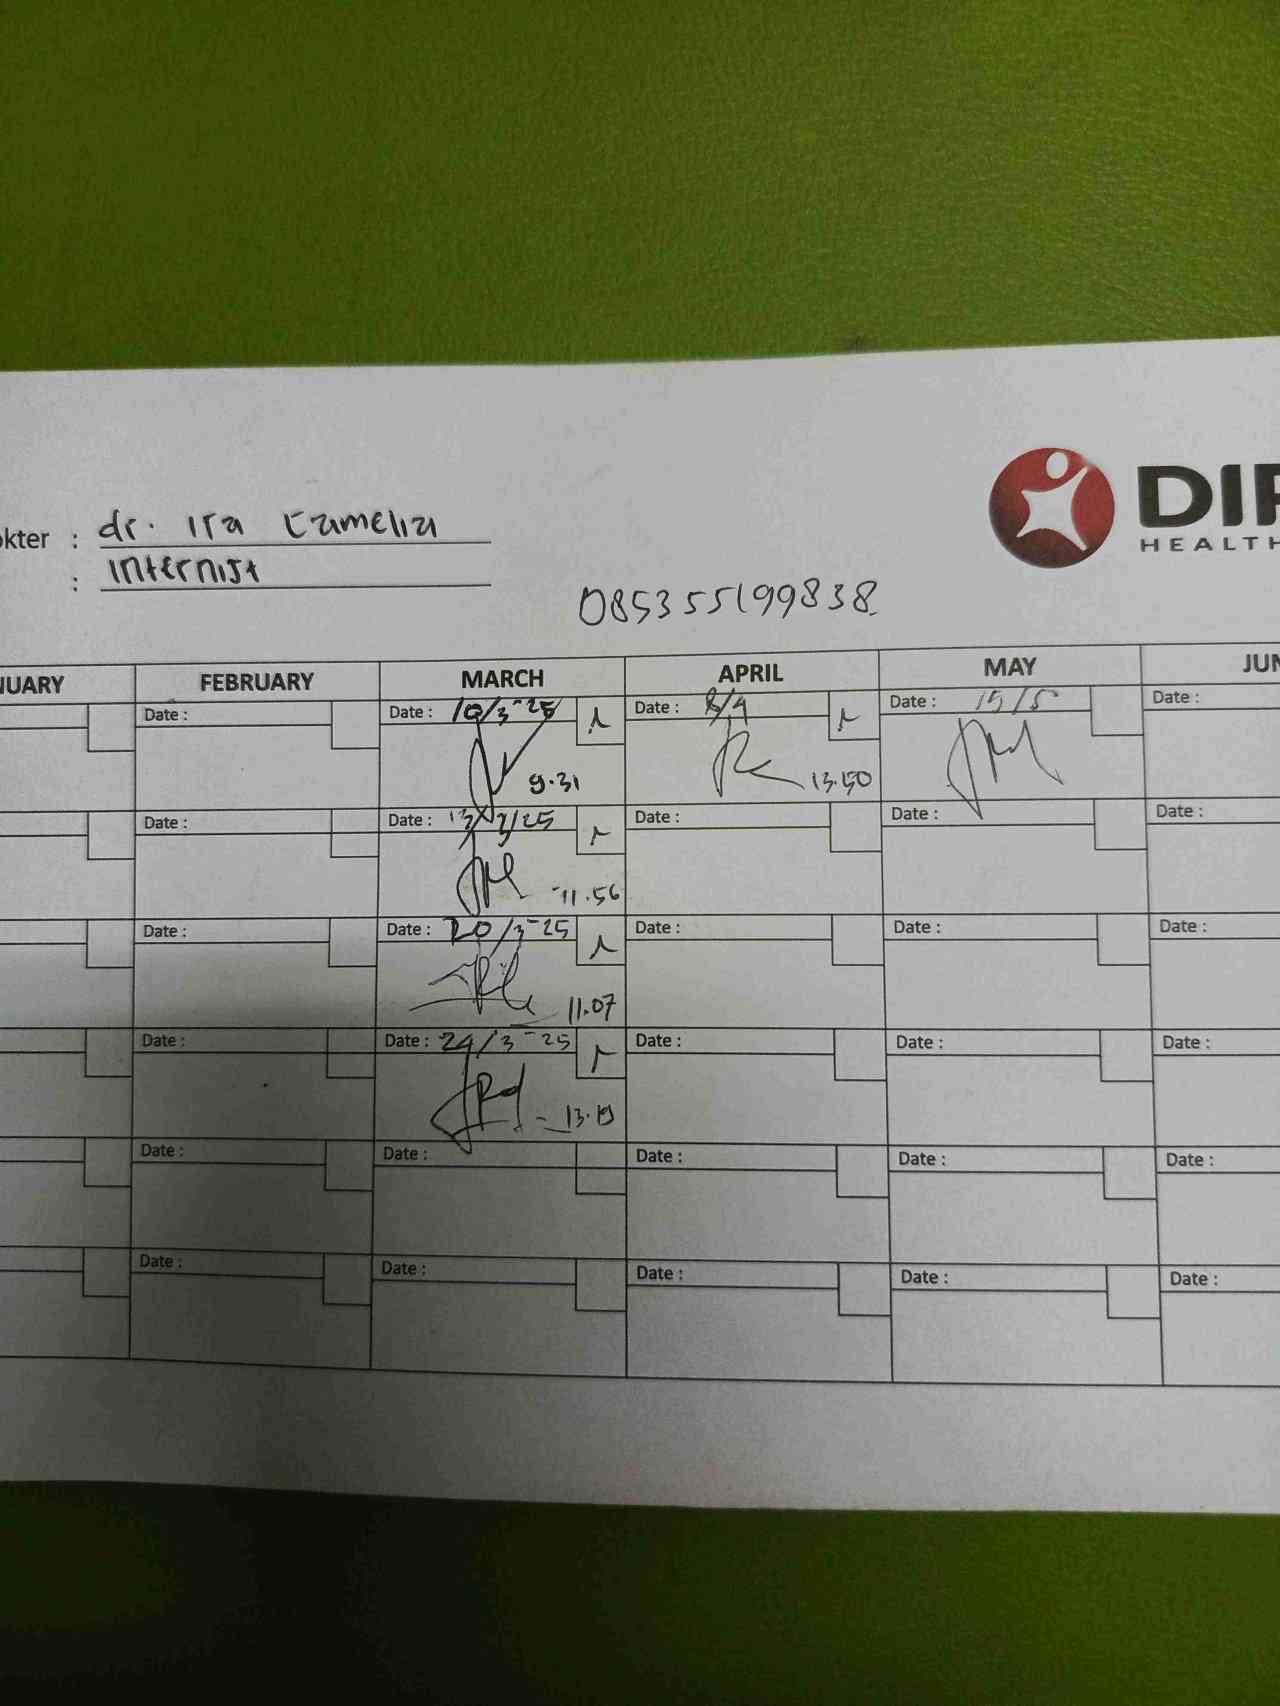 okter : dr. Ira Camelia
: Internist
DIP
HEALTH
085355199838
NUARY FEBRUARY MARCH APRIL MAY JUN
Date : Date : 10/3-25 Date : 8/4 Date : 15/5 Date :
9.31 13.50
Date : Date : 13/3/25 Date : Date : Date :
11.56
Date : Date : 20/3-25 Date : Date : Date :
11.07
Date : Date : 24/3-25 Date : Date : Date :
13.19
Date : Date : Date : Date : Date :
Date : Date : Date : Date : Date :